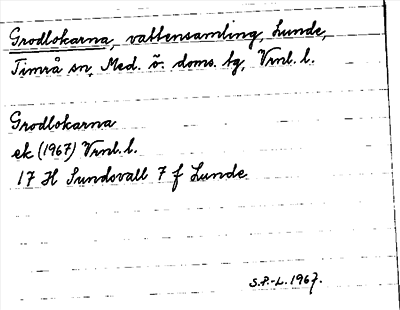 Grodlokarna, vattensamling, Lunde,
Timrå sn, Med. ö. doms. tg, Vrnl. l.
Grodlokarna
ek (1967) Vrnl. l.
17 H Sundsvall 7 f Lunde
S.P.-L. 1967.